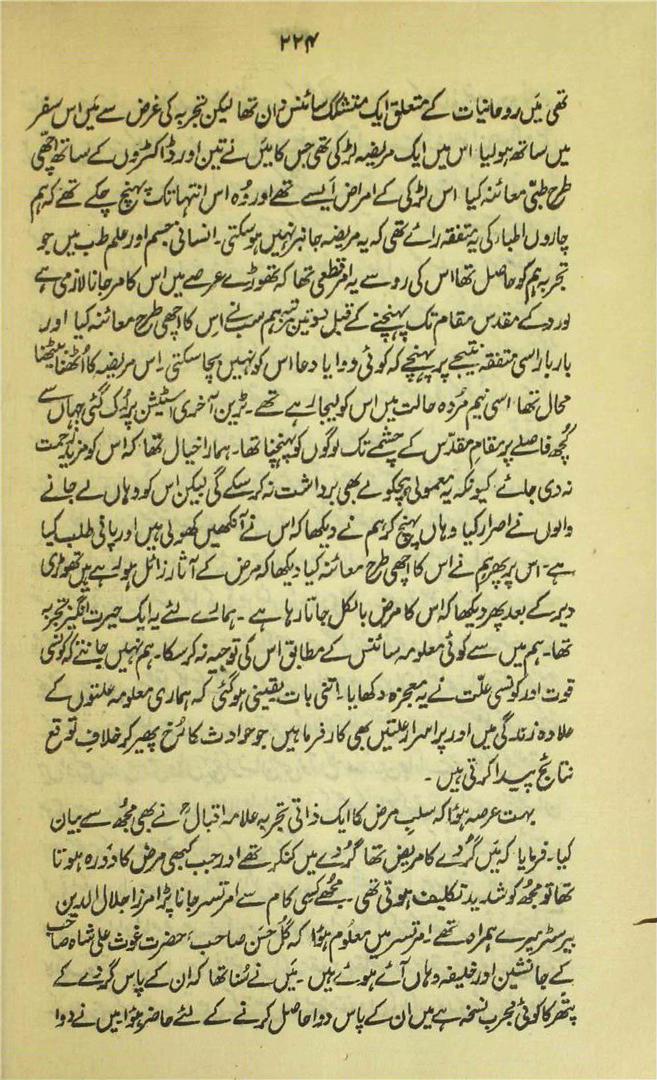 ۲۲۴
تھی میں روحانیات کے متعلق ایک متشکک سائنس دان تھا لیکن تجربہ کی غرض سے میں اس سفر
میں ساتھ ہو لیا اس میں ایک مریضہ لڑکی تھی جس کا میں نے تین اور ڈاکٹروں کے ساتھ اچھی
طرح طبی معائنہ کیا اس لڑکی کے امراض ایسے تھے اور وہ اس انتہا تک پہنچ چکے تھے کہ ہم
چاروں اطبار کی یہ متفقہ رائے تھی کہ یہ مریضہ جانبر نہیں ہو سکتی۔ انسانی جسم اور علم طب میں جو
تجربہ ہم کو حاصل تھا اس کی رو سے یہ امر قطعی تھا کہ تھوڑے عرصے میں اس کا مر جانا لازمی ہے
لورد کے مقدس مقام تک پہنچنے کے قبل دو تین مرتبہ ہم سب نے اس کا اچھی طرح معائنہ کیا اور
بار بار اسی متفقہ نتیجے پر پہنچے کہ کوئی دوا یا دعا اس کو نہیں بچا سکتی۔ اس مریضہ کا اُٹھنا بیٹھنا
محال تھا اسی نیم مُردہ حالت میں اس کو لیجا رہے تھے۔ ٹرین آخری اسٹیشن پر رُک گئی جہاں سے
کچھ فاصلے پر مقامِ مقدّس کے چشمے تک لوگوں کو پہنچنا تھا۔ ہمارا خیال تھا کہ اس کو مزید زحمت
نہ دی جائے کیونکہ یہ معمولی ہچکولے بھی برداشت نہ کر سکے گی لیکن اس کو وہاں لے جانے
والوں نے اصرار کیا وہاں پہنچ کر ہم نے دیکھا کہ اس نے آنکھیں کھولی ہیں اور پانی طلب کیا
ہے۔ اس پر پھر ہم نے اس کا اچھی طرح معائنہ کیا دیکھا کہ مرض کے آثار زائل ہو رہے ہیں تھوڑی
دیر کے بعد پھر دیکھا کہ اس کا مرض بالکل جاتا رہا ہے۔ ہمارے لئے یہ ایک حیرت انگیز تجربہ
تھا۔ ہم میں سے کوئی معلومہ سائنس کے مطابق اس کی توجیہ نہ کر سکا۔ ہم نہیں جانتے کہ کونسی
قوت اور کونسی علّت نے یہ معجزہ دکھایا۔ اتنی بات یقینی ہو گئی کہ ہماری معلومہ علتوں کے
علاوہ زندگی میں اور پر اسرار علتیں بھی کار فرما ہیں جو حوادث کا رُخ پھیر کر خلافِ توقع
نتائج پیدا کرتی ہیں۔
بہت عرصہ ہوا کہ سلبِ مرض کا ایک ذاتی تجربہ علامہ اقبالؒ نے بھی مجھ سے بیان
کیا۔ فرمایا کہ میں گُردے کا مریض تھا گُردے میں کنکر تھے اور جب کبھی مرض کا دَورہ ہوتا
تھا تو مجھ کو شدید تکلیف ہوتی تھی۔ مجھے کسی کام سے امرتسر جانا پڑا مرزا جلال الدین
بیرسٹر میرے ہمراہ تھے۔ امرتسر میں معلوم ہوا کہ گُل حسن صاحب، حضرت غوث علی شاہ صاحب
کے جانشین اور خلیفہ وہاں آئے ہوئے ہیں۔ میں نے سُنا تھا کہ ان کے پاس گردے کے
پتھر کا کوئی مجرب نسخہ ہے میں ان کے پاس دوا حاصل کرنے کے لئے حاضر ہوا۔ میں نے دوا